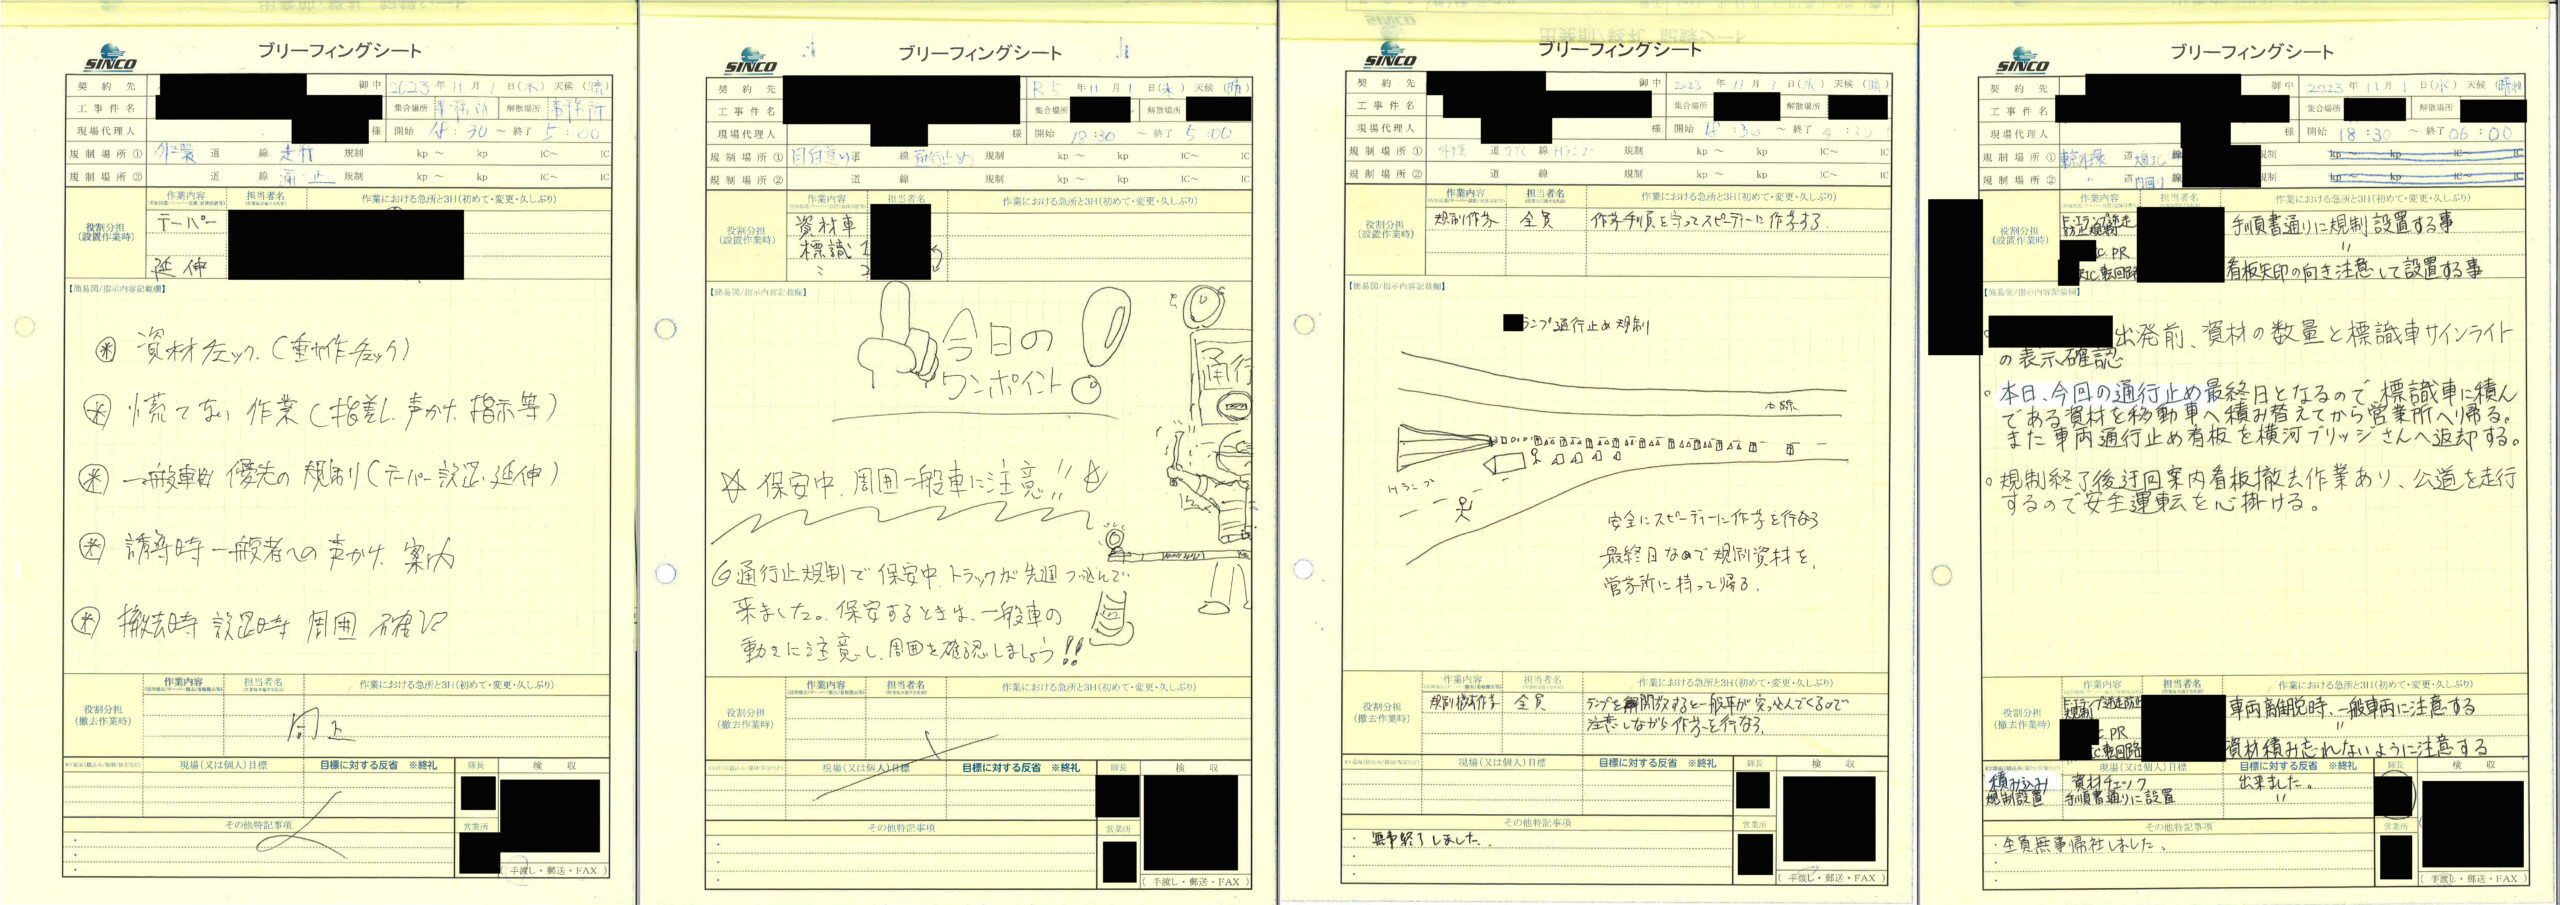 SINCO
ブリーフィングシート
契約先
御中
2023年11月1日(水)天候(晴)
工事件名
集合場所
解散場所
現場代理人
様
開始 18:30 ～ 終了 5:00
規制場所① 作業 道 線 走行 規制 kp～ kp IC～ IC
規制場所② 道 線 通・止 規制 kp～ kp IC～ IC
役割分担
(設置作業時)
作業内容
担当者名
作業における急所と3H(初めて・変更・久しぶり)
テーパー
延伸
【簡易図/指示内容記載欄】
資材チェック(動作チェック)
慌てない作業(指差し、声かけ、指示等)
一般車両優先の規制(テーパー設置、延伸)
誘導時一般者への声かけ、案内
撤去時 設置時 周囲 確認
役割分担
(撤去作業時)
作業内容
担当者名
作業における急所と3H(初めて・変更・久しぶり)
同上
現場(又は個人)目標
目標に対する反省 ※終礼
隊長
検収
その他特記事項
営業所
(手渡し・郵送・FAX)
SINCO
ブリーフィングシート
契約先
R5年11月1日(水)天候(晴)
工事件名
集合場所
解散場所
現場代理人
様
開始 18:30 ～ 終了 5:00
規制場所① 目白通り 道 線 通行止め 規制 kp～ kp IC～ IC
規制場所② 道 線 規制 kp～ kp IC～ IC
役割分担
(設置作業時)
作業内容
担当者名
作業における急所と3H(初めて・変更・久しぶり)
資材車
標識 1
〃 2
【簡易図/指示内容記載欄】
今日の
ワンポイント
通行
☆保安中、周囲一般車に注意!!☆
◎通行止規制で保安中、トラックが先週つっ込んで
来ました。保安するときは、一般車の
動きに注意し、周囲を確認しましょう!!
役割分担
(撤去作業時)
作業内容
担当者名
作業における急所と3H(初めて・変更・久しぶり)
現場(又は個人)目標
目標に対する反省 ※終礼
隊長
検収
その他特記事項
営業所
(手渡し・郵送・FAX)
SINCO
ブリーフィングシート
契約先
御中
2023年11月1日(水)天候(晴)
工事件名
集合場所
解散場所
現場代理人
様
開始 18:30 ～ 終了 4:30
規制場所① 道 線 規制 kp～ kp IC～ IC
規制場所② 道 線 規制 kp～ kp IC～ IC
役割分担
(設置作業時)
作業内容
担当者名
作業における急所と3H(初めて・変更・久しぶり)
規制作業 全員 作業手順を守ってスピーディーに作業する。
【簡易図/指示内容記載欄】
ランプ通行止め規制
本線
ランプ
安全にスピーディーに作業を行なう
最終日なので規制資材を、
営業所に持って帰る。
役割分担
(撤去作業時)
作業内容
担当者名
作業における急所と3H(初めて・変更・久しぶり)
規制撤去作業 全員 ランプを開放すると一般車が突っ込んでくるので
注意しながら作業を行なう。
現場(又は個人)目標
目標に対する反省 ※終礼
隊長
検収
その他特記事項
・無事終了しました。
営業所
(手渡し・郵送・FAX)
SINCO
ブリーフィングシート
契約先
御中
2023年11月1日(水)天候(晴)
工事件名
集合場所
解散場所
現場代理人
様
開始 18:30 ～ 終了 06:00
規制場所① 東京外環 道 線 規制 kp～ kp IC～ IC
規制場所② 〃 道 内回り 線 規制 kp～ kp IC～ IC
役割分担
(設置作業時)
作業内容
担当者名
作業における急所と3H(初めて・変更・久しぶり)
手順書通りに規制設置する事
IC.PR 〃
IC.転回路 看板矢印の向き注意して設置する事
【簡易図/指示内容記載欄】
出発前、資材の数量と標識車サインライト
の表示確認
○本日、今回の通行止め最終日となるので、標識車に積ん
である資材を移動車へ積み替えてから営業所へ帰る。
また車両通行止め看板を横河ブリッジさんへ返却する。
○規制終了後迂回案内看板撤去作業あり、公道を走行
するので安全運転を心掛ける。
役割分担
(撤去作業時)
作業内容
担当者名
作業における急所と3H(初めて・変更・久しぶり)
車両離脱時、一般車両に注意する
C.PR 〃
C.転回路 資材積み忘れないように注意する
現場(又は個人)目標
目標に対する反省 ※終礼
隊長
検収
積み込み 資材チェック 出来ました。
規制設置 手順書通りに設置 〃
その他特記事項
・全員無事帰社しました。
営業所
(手渡し・郵送・FAX)